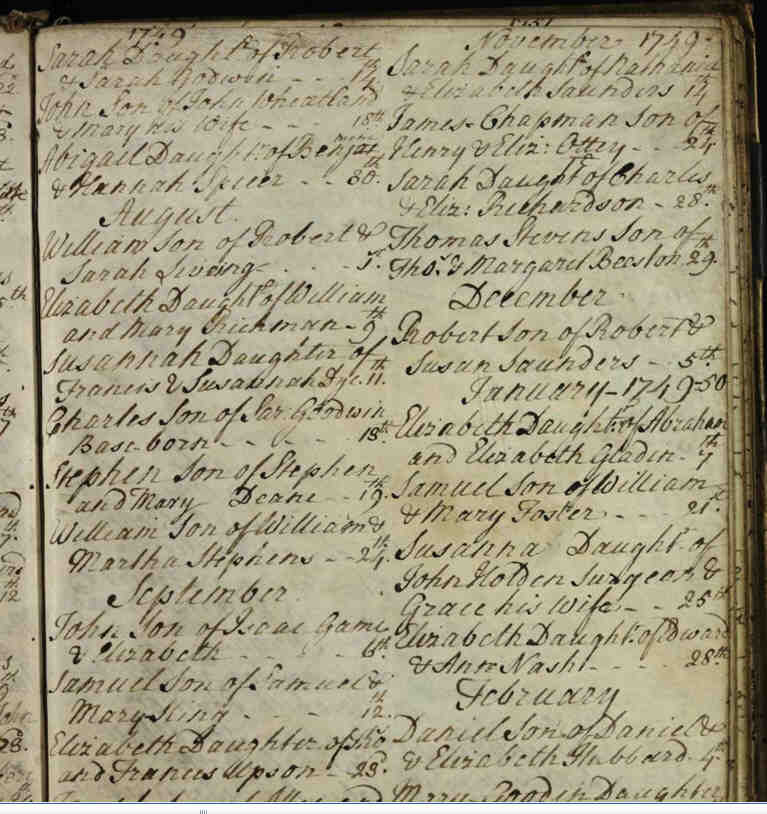 1749
Sarah Daught.r of Robert
& Sarah Godwin - - 14th
John Son of John Wheatland
& Mary his Wife - - - 18th
Abigail Daught.r of Benja
& Hannah Spicer - - 30th
August
William Son of Robert &
Sarah - - - 5th
Elizabeth Daught.r of William
and Mary Richman - 9th
Susannah Daughter of
Francis & Susannah Dye. 11th
Charles Son of Sar: Goodwin
Base born - - - - 18th
Stephen Son of Stephen
and Mary Deane - - 19th
William Son of William &
Martha Stephens - - 24th
September
John Son of Isaac Game
& Elizabeth - - - 6th
Samuel Son of Samuel &
Mary King - - - 12th
Elizabeth Daughter of
and Frances Upson - 23d
November 1749
Sarah Daught.r of Nathaniel
& Elizabeth Saunders 14th
James Chapman Son of
Henry & Eliz: Ottey - - 24th
Sarah Daught.r of Charles
& Eliz: Richardson - 28th
Thomas Stevens Son of
Tho.s & Margaret Beeston 29th
December
Robert Son of Robert &
Susan Saunders - 5th
January - 1749-50
Elizabeth Daught.r of Abraham
and Elizabeth Gladen - 7th
Samuel Son of William
& Mary Foster - - - 21st
Susanna Daught.r of
John Holden Surgeon &
Grace his Wife - - 25th
Elizabeth Daught.r of Edward
& Ann Nash - - - - 28th
February
Daniel Son of Daniel &
& Elizabeth Hubbard - 4th
Mary Daughter